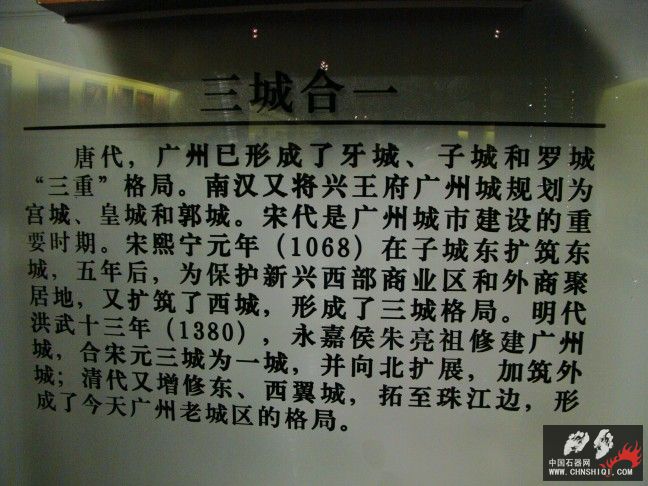 三城合一
唐代，广州已形成了牙城、子城和罗城
“三重”格局。南汉又将兴王府广州城规划为
宫城、皇城和郭城。宋代是广州城市建设的重
要时期。宋熙宁元年（1068）在子城东扩筑东
城，五年后，为保护新兴西部商业区和外商聚
居地，又扩筑了西城，形成了三城格局。明代
洪武十三年（1380），永嘉侯朱亮祖修建广州
城，合宋元三城为一城，并向北扩展，加筑外
城；清代又增修东、西翼城，拓至珠江边，形
成了今天广州老城区的格局。
中国石器网
WWW.CHNSHIQI.COM